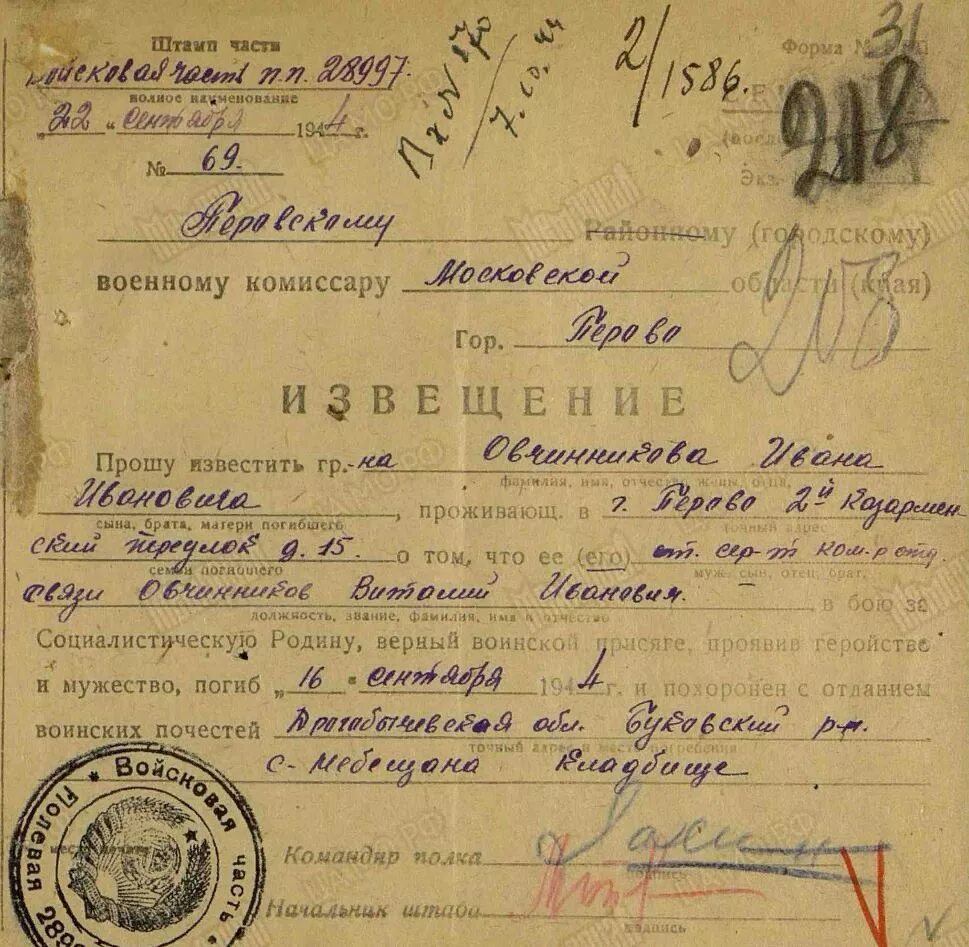 Штамп части
Войсковая часть п.п. 28997.
полное наименование
„22" сентября 1944 г.
№ 69.
7.10.44
2/1586.
Форма №
31
218
Экз.
Перовскому Районному (городскому)
военному комиссару Московской области (края)
Гор. Перово
ИЗВЕЩЕНИЕ
Прошу известить гр.-на Овчинникова Ивана
фамилия, имя, отчество жены, отца,
Ивановича, проживающ. в г. Перово 2й Казармен
сына, брата, матери погибшего
точный адрес
ский переулок д. 15. о том, что ее (его) ст. сер-т ком-р отд.
семьи погибшего
муж, сын, отец, брат,
связи Овчинников Виталий Иванович. в бою за
должность, звание, фамилия, имя и отчество
Социалистическую Родину, верный воинской присяге, проявив геройство
и мужество, погиб „16" сентября 1944 г. и похоронен с отданием
воинских почестей Дрогобычевская обл. Буковский р-н.
точный адрес и место погребения
с. Небещана Кладбище
Войсковая часть
Полевая
место печати
Командир полка
подпись
Начальник штаба
подпись